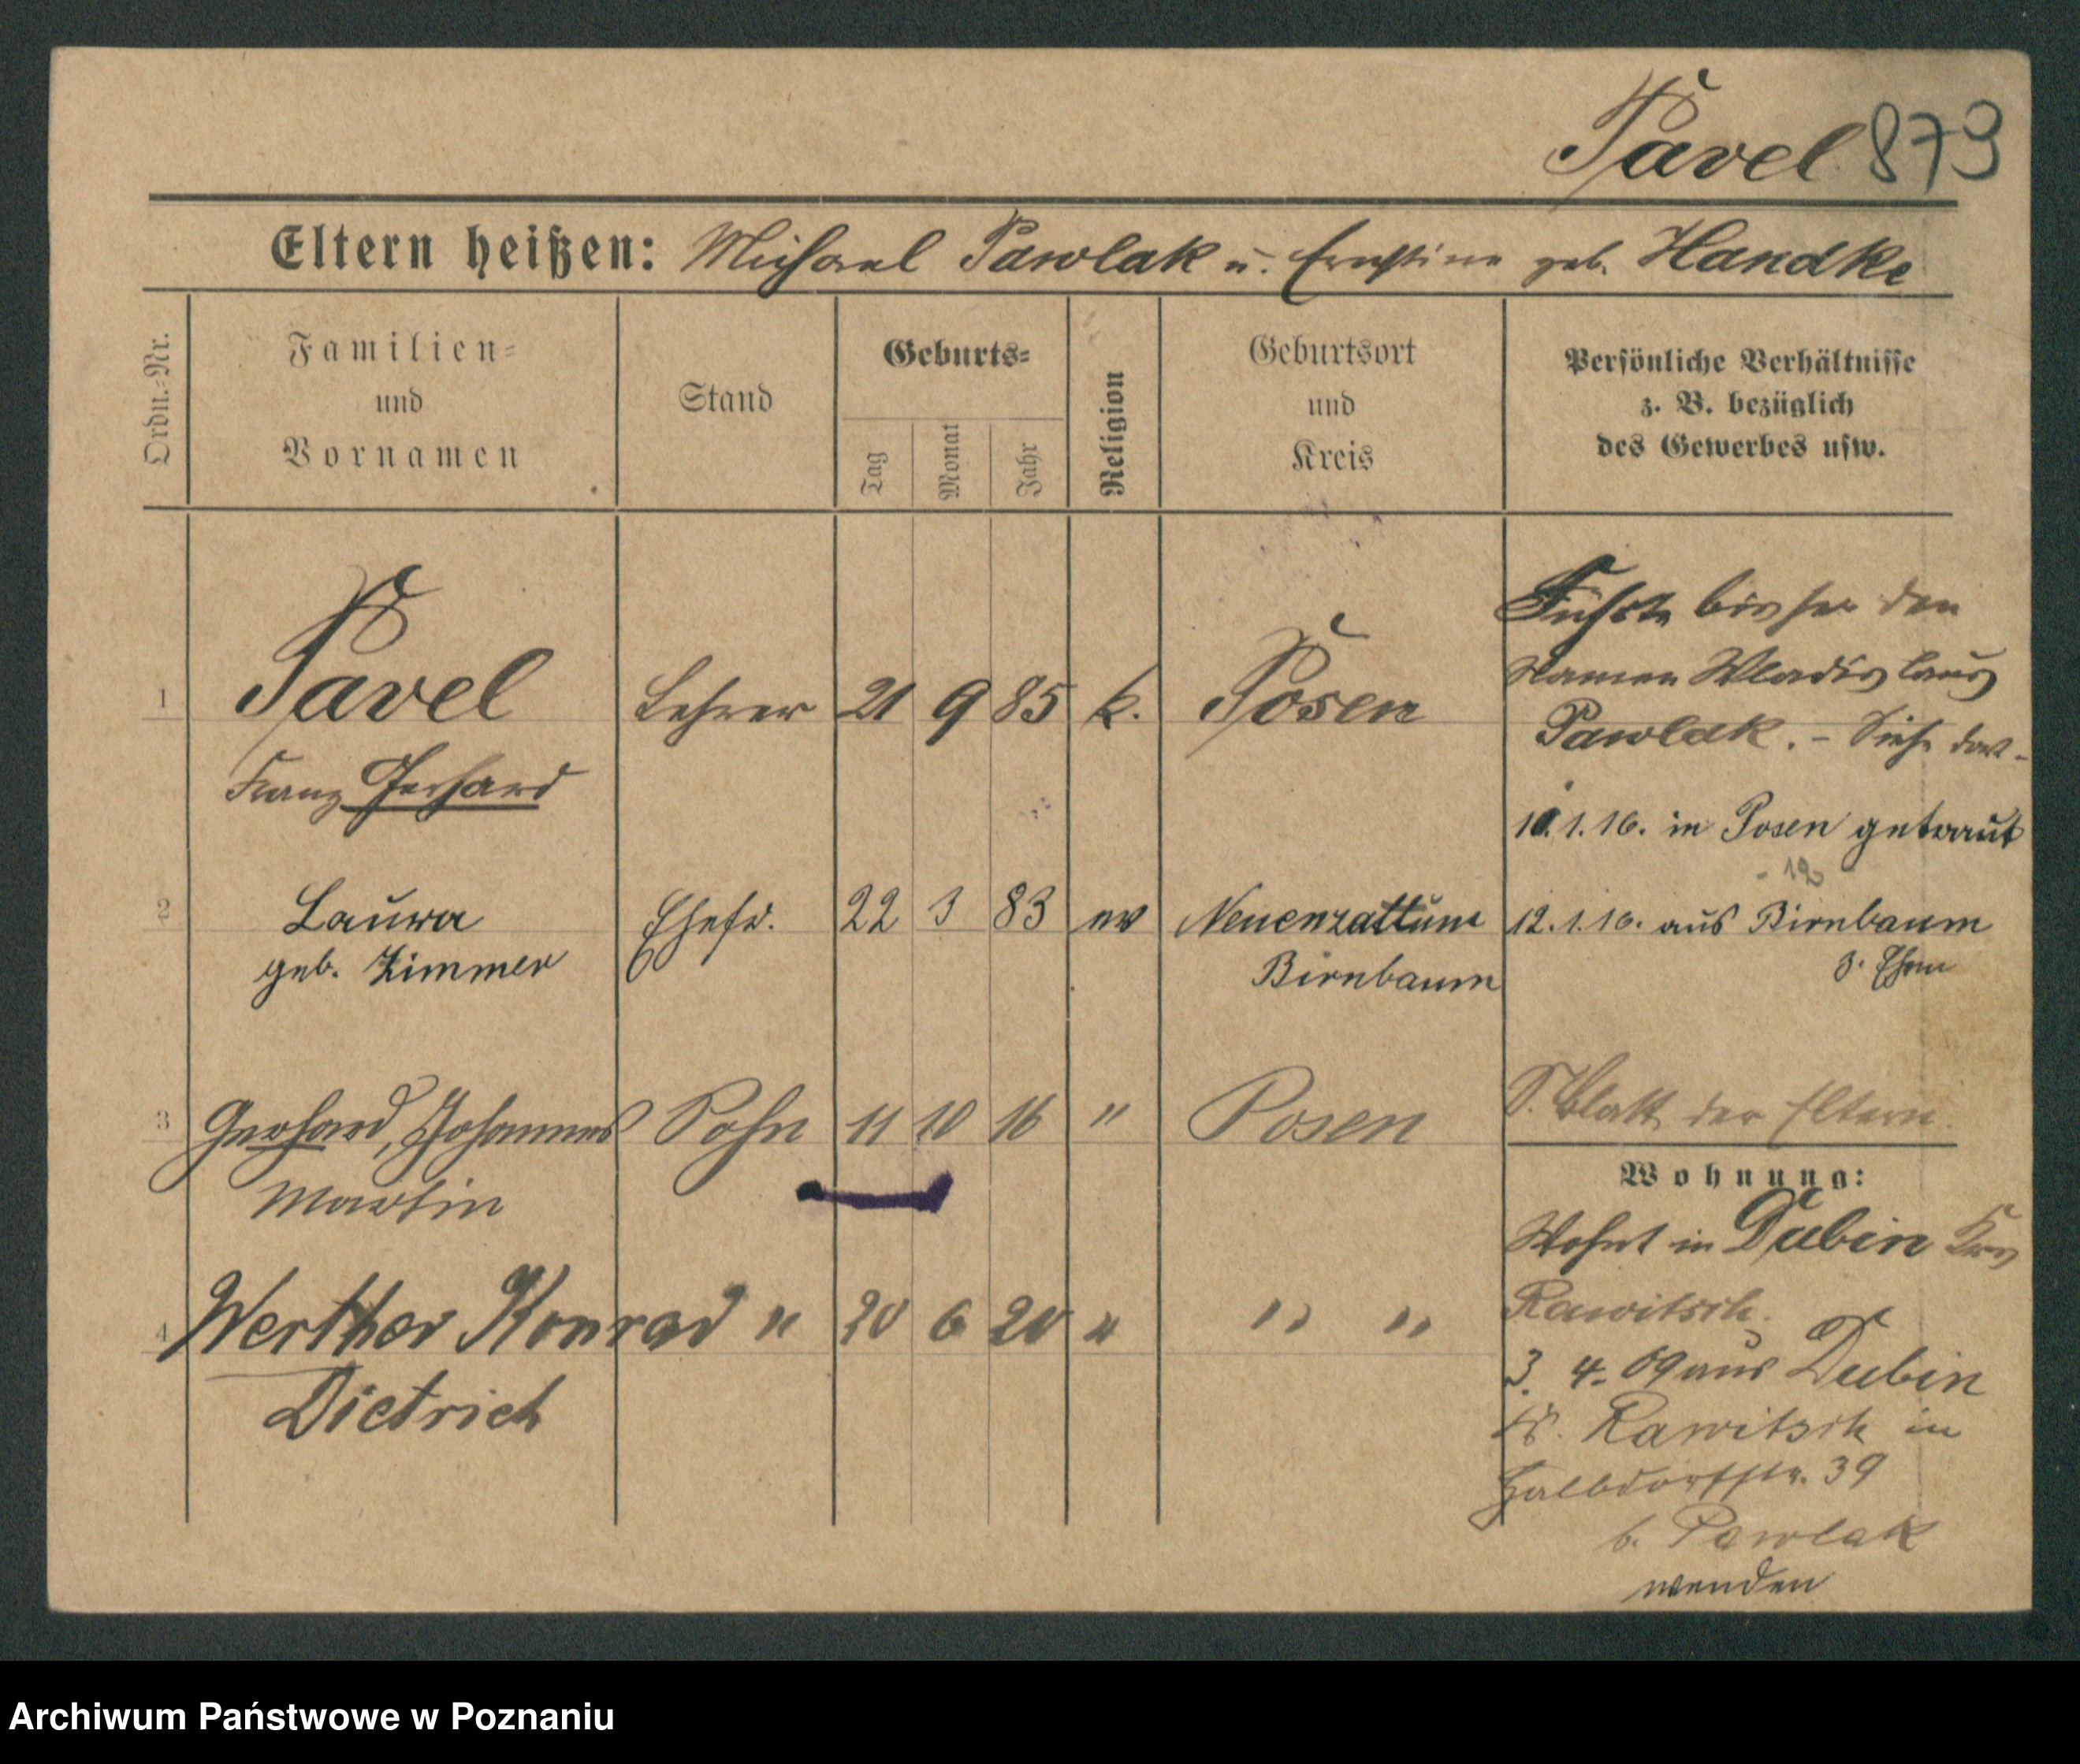 Pavel 873
Eltern heißen: Michael Pawlak u. Ernstine geb. Handke
Ordn.-Nr.
Familien-
und
Vornamen
Stand
Geburts-
Tag
Monat
Jahr
Religion
Geburtsort
und
Kreis
Persönliche Verhältnisse
z. B. bezüglich
des Gewerbes usw.
1 Pavel Lehrer 21 9 85 k. Posen
Franz Gerhard
Führte bisher den
Namen Wladislaus
Pawlak. - Siehe dort-
10.1.16. in Posen getraut
- 12
2 Laura Ehefr. 22 3 83 ev Neuenzattum 12.1.16. aus Birnbaum
geb. Zimmer Birnbaum z. Ehem
3 Gerhard, Johannes Sohn 11 10 16 " Posen S. Blatt der Eltern.
Martin
Wohnung:
Wohnt in Dubin Krs
Rawitsch.
4 Werther Konrad " 20 6 20 " " "
Dietrich
3. 4. 09 aus Dubin
Kr. Rawitsch in
Halbdorfstr. 39
b. Pawlak
wenden
Archiwum Państwowe w Poznaniu